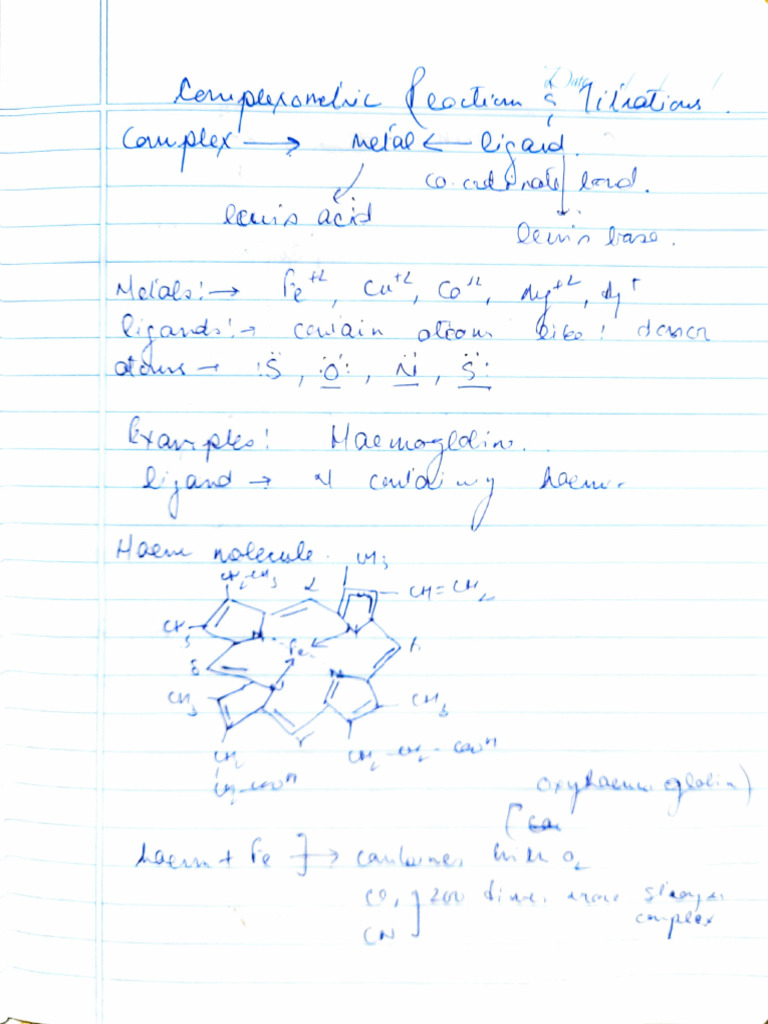 Date
Complexometric Reaction & Titrations.
Complex → metal ← ligand.
co-ordinate bond.
lewis acid
lewis base.
Metals:→ Fe+2, Cu+2, Co+2, Mg+2, Ag+
ligands:→ contain atoms like: doner
atoms → :S̈, :Ö:, N̈, S̈:
Examples: Haemoglobin.
ligand → N containing haem.
Haem molecule. CH3
CH2CH3 α CH=CH2
CH3 N N
Fe
δ β
CH3 N N CH3
γ
CH2 CH2-CH2-COOH
CH2-COOH
oxyhaemoglobin)
haem + Fe ]→ combines with O2
CO, ] 200 times more stronger
complex
CN